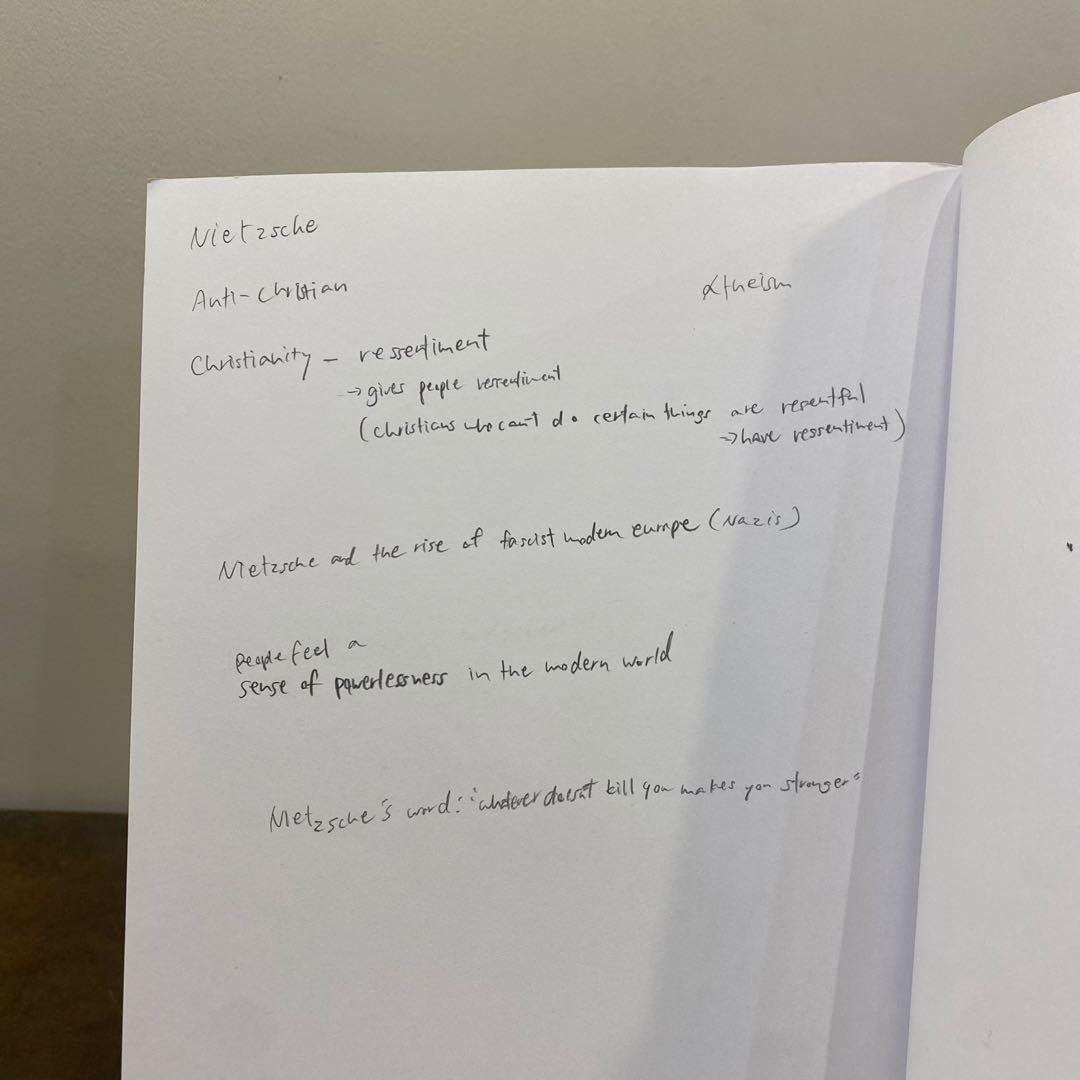 Nietzsche
Anti-Christian
Atheism
Christianity - ressentiment
→ gives people ressentiment
(Christians who can't do certain things are resentful
→ have ressentiment)
Nietzsche and the rise of fascist modern europe (Nazis)
people feel a
sense of powerlessness in the modern world
Nietzsche's word: "whatever doesn't kill you makes you stronger"